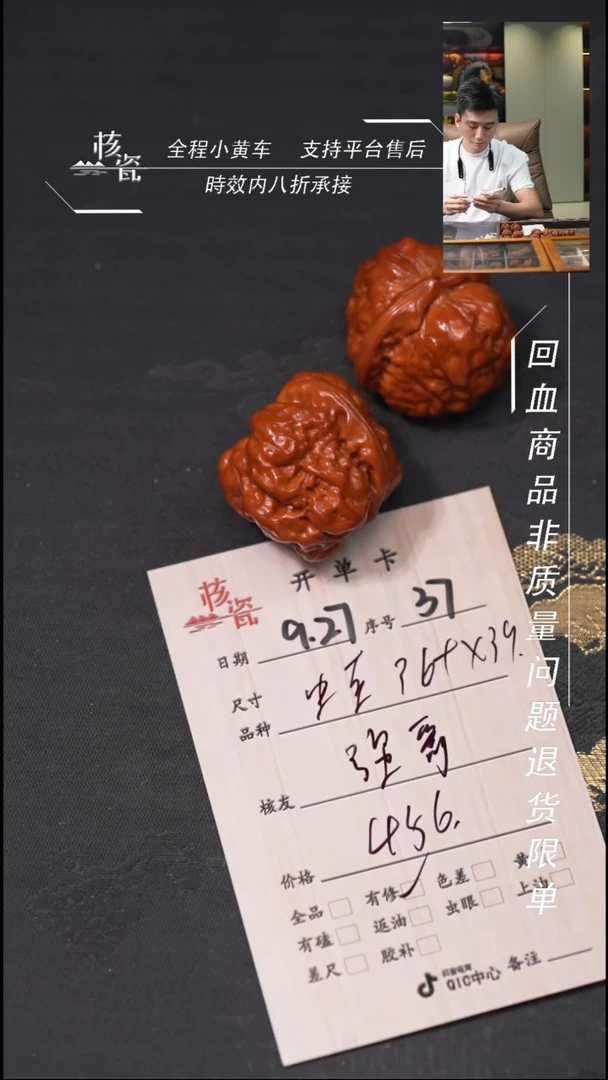 核瓷
全程小黄车 支持平台售后
時效内八折承接
回血商品非质量问题退货限单
核瓷
开单卡
日期 9.27 序号 37
尺寸
品种
核友
456.
价格
全品 有修 ✓ 色差 黄
有磕 返油 虫眼 上油
差尺 胶补
抖音电商
QIC中心 备注